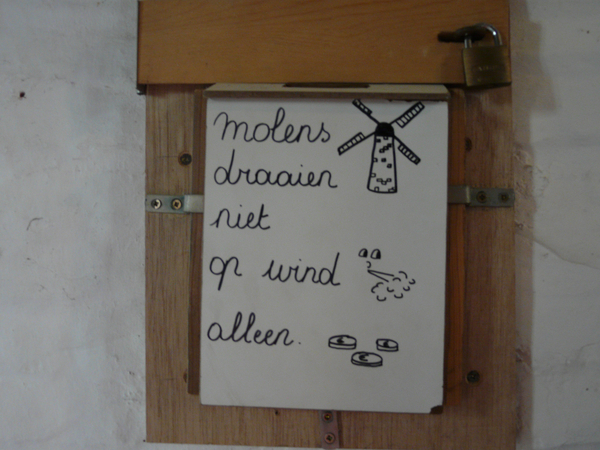 molens
draaien
niet
op wind
alleen.